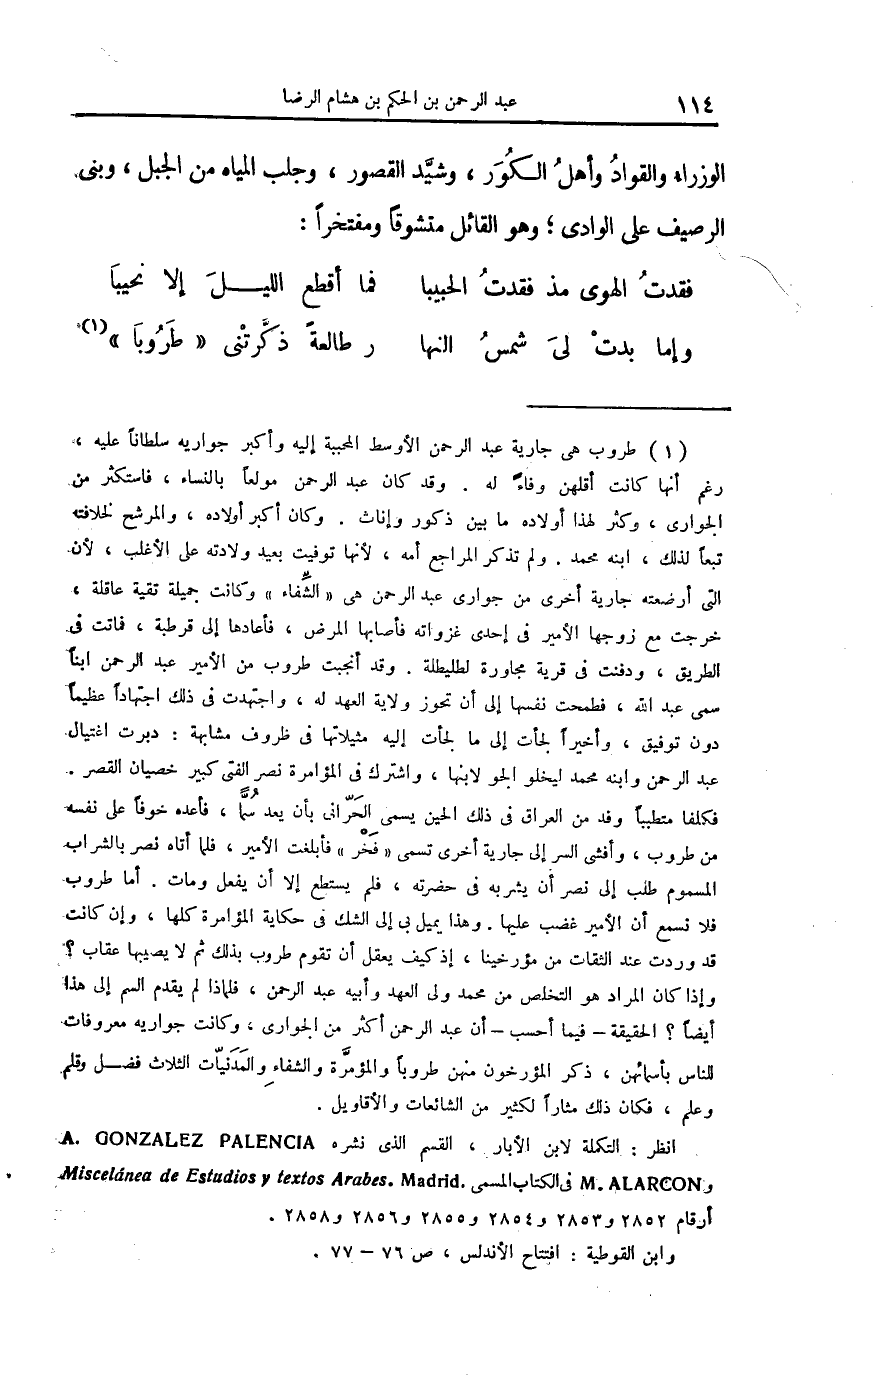 ١١٤ عبد الرحمن بن الحكم بن هشام الرضا
الوزراء والقوادُ وأهلُ الـكُوَر ، وشيَّد القصور ، وجلب المياه من الجبل ، وبنى
الرصيف على الوادى ؛ وهو القائل متشوقاً ومفتخراً :
فقدتُ الهوى مذ فقدتُ الحبيبا فما أقطع الليـــلَ إلا نحيبَا
وإما بدتْ لىَ شمسُ النها ر طالعةً ذكَّرتْنى « طَرُوبَا »(١)
(١) طروب هى جارية عبد الرحمن الأوسط المحببة إليه وأكبر جواريه سلطاناً عليه ،
رغم أنها كانت أقلهن وفاءً له . وقد كان عبد الرحمن مولعاً بالنساء ، فاستكثر من
الجوارى ، وكثر لهذا أولاده ما بين ذكور وإناث . وكان أكبر أولاده ، والمرشح لخلافته
تبعاً لذلك ، ابنه محمد . ولم تذكر المراجع أمه ، لأنها توفيت بعيد ولادته على الأغلب ، لأن
التى أرضعته جارية أخرى من جوارى عبد الرحمن هى « الشِّفاء » وكانت جميلة تقية عاقلة ،
خرجت مع زوجها الأمير فى إحدى غزواته فأصابها المرض ، فأعادها إلى قرطبة ، فماتت فى
الطريق ، ودفنت فى قرية مجاورة لطليطلة . وقد أنجبت طروب من الأمير عبد الرحمن ابناً
سمى عبد الله ، فطمحت نفسها إلى أن تحوز ولاية العهد له ، واجتهدت فى ذلك اجتهاداً عظيماً
دون توفيق ، وأخيراً لجأت إلى ما لجأت إليه مثيلاتها فى ظروف مشابهة : دبرت اغتيال
عبد الرحمن وابنه محمد ليخلو الجو لابنها ، واشترك فى المؤامرة نصر الفتى كبير خصيان القصر .
فكلفا متطبباً وفد من العراق فى ذلك الحين يسمى الحَرّانى بأن يعد سُمًّا ، فأعده خوفاً على نفسه
من طروب ، وأفشى السر إلى جارية أخرى تسمى « فَخْر » فأبلغت الأمير ، فلما أتاه نصر بالشراب
المسموم طلب إلى نصر أن يشربه فى حضرته ، فلم يستطع إلا أن يفعل ومات . أما طروب
فلا نسمع أن الأمير غضب عليها . وهذا يميل بى إلى الشك فى حكاية المؤامرة كلها ، وإن كانت
قد وردت عند الثقات من مؤرخينا ، إذ كيف يعقل أن تقوم طروب بذلك ثم لا يصيبها عقاب ؟
وإذا كان المراد هو التخلص من محمد ولى العهد وأبيه عبد الرحمن ، فلماذا لم يقدم السم إلى هذا
أيضاً ؟ الحقيقة – فيما أحسب – أن عبد الرحمن أكثر من الجوارى ، وكانت جواريه معروفات
للناس بأسمائهن ، ذكر المؤرخون منهن طروباً والمؤمَّرة والشفاء والمَدَنيّات الثلاث فضـل وقلم
وعلم ، فكان ذلك مثاراً لكثير من الشائعات والأقاويل .
انظر : التكملة لابن الأبار ، القسم الذى نشره A. GONZALEZ PALENCIA
و M. ALARCON فى الكتاب المسمى Miscelánea de Estudios y textos Arabes. Madrid.
أرقام ٢٨٥٢ و ٢٨٥٣ و ٢٨٥٤ و ٢٨٥٥ و ٢٨٥٦ و ٢٨٥٨ .
وابن القوطية : افتتاح الأندلس ، ص ٧٦ – ٧٧ .